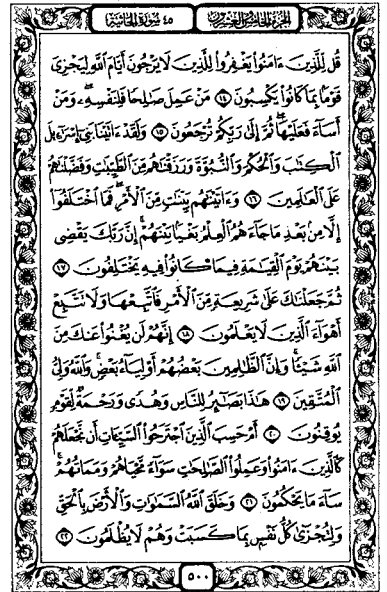 الجزء الخامس والعشرون ٤٥ سورة الجاثية
قُل لِّلَّذِينَ ءَامَنُوا۟ يَغْفِرُوا۟ لِلَّذِينَ لَا يَرْجُونَ أَيَّامَ ٱللَّهِ لِيَجْزِىَ
قَوْمًۢا بِمَا كَانُوا۟ يَكْسِبُونَ ١٤ مَنْ عَمِلَ صَٰلِحًا فَلِنَفْسِهِۦ ۖ وَمَنْ
أَسَآءَ فَعَلَيْهَا ۖ ثُمَّ إِلَىٰ رَبِّكُمْ تُرْجَعُونَ ١٥ وَلَقَدْ ءَاتَيْنَا بَنِىٓ إِسْرَٰٓءِيلَ
ٱلْكِتَٰبَ وَٱلْحُكْمَ وَٱلنُّبُوَّةَ وَرَزَقْنَٰهُم مِّنَ ٱلطَّيِّبَٰتِ وَفَضَّلْنَٰهُمْ
عَلَى ٱلْعَٰلَمِينَ ١٦ وَءَاتَيْنَٰهُم بَيِّنَٰتٍ مِّنَ ٱلْأَمْرِ ۖ فَمَا ٱخْتَلَفُوٓا۟
إِلَّا مِنۢ بَعْدِ مَا جَآءَهُمُ ٱلْعِلْمُ بَغْيًۢا بَيْنَهُمْ ۚ إِنَّ رَبَّكَ يَقْضِى
بَيْنَهُمْ يَوْمَ ٱلْقِيَٰمَةِ فِيمَا كَانُوا۟ فِيهِ يَخْتَلِفُونَ ١٧
ثُمَّ جَعَلْنَٰكَ عَلَىٰ شَرِيعَةٍ مِّنَ ٱلْأَمْرِ فَٱتَّبِعْهَا وَلَا تَتَّبِعْ
أَهْوَآءَ ٱلَّذِينَ لَا يَعْلَمُونَ ١٨ إِنَّهُمْ لَن يُغْنُوا۟ عَنكَ مِنَ
ٱللَّهِ شَيْـًٔا ۚ وَإِنَّ ٱلظَّٰلِمِينَ بَعْضُهُمْ أَوْلِيَآءُ بَعْضٍ ۖ وَٱللَّهُ وَلِىُّ
ٱلْمُتَّقِينَ ١٩ هَٰذَا بَصَٰٓئِرُ لِلنَّاسِ وَهُدًى وَرَحْمَةٌ لِّقَوْمٍ
يُوقِنُونَ ٢٠ أَمْ حَسِبَ ٱلَّذِينَ ٱجْتَرَحُوا۟ ٱلسَّيِّـَٔاتِ أَن نَّجْعَلَهُمْ
كَٱلَّذِينَ ءَامَنُوا۟ وَعَمِلُوا۟ ٱلصَّٰلِحَٰتِ سَوَآءً مَّحْيَاهُمْ وَمَمَاتُهُمْ ۚ
سَآءَ مَا يَحْكُمُونَ ٢١ وَخَلَقَ ٱللَّهُ ٱلسَّمَٰوَٰتِ وَٱلْأَرْضَ بِٱلْحَقِّ
وَلِتُجْزَىٰ كُلُّ نَفْسٍۭ بِمَا كَسَبَتْ وَهُمْ لَا يُظْلَمُونَ ٢٢
٥٠٠